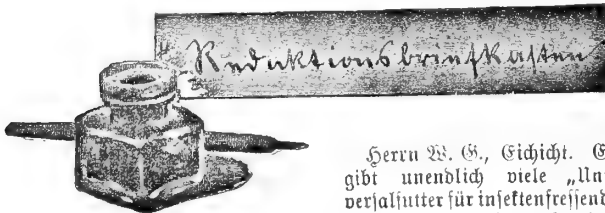 Redaktionsbriefkasten
Herrn W. G., Eichicht. E
gibt unendlich viele „Uni
versalfutter für insektenfressend